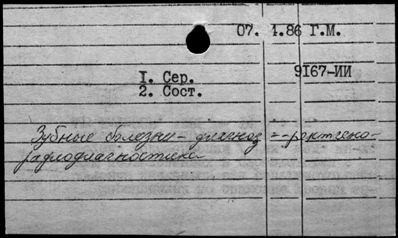 07. 4.86 Г.М.
9I67-ИИ
I. Сер.
2. Сост.
Зубные болезни - диагноз - рентгено-
радиодиагностика